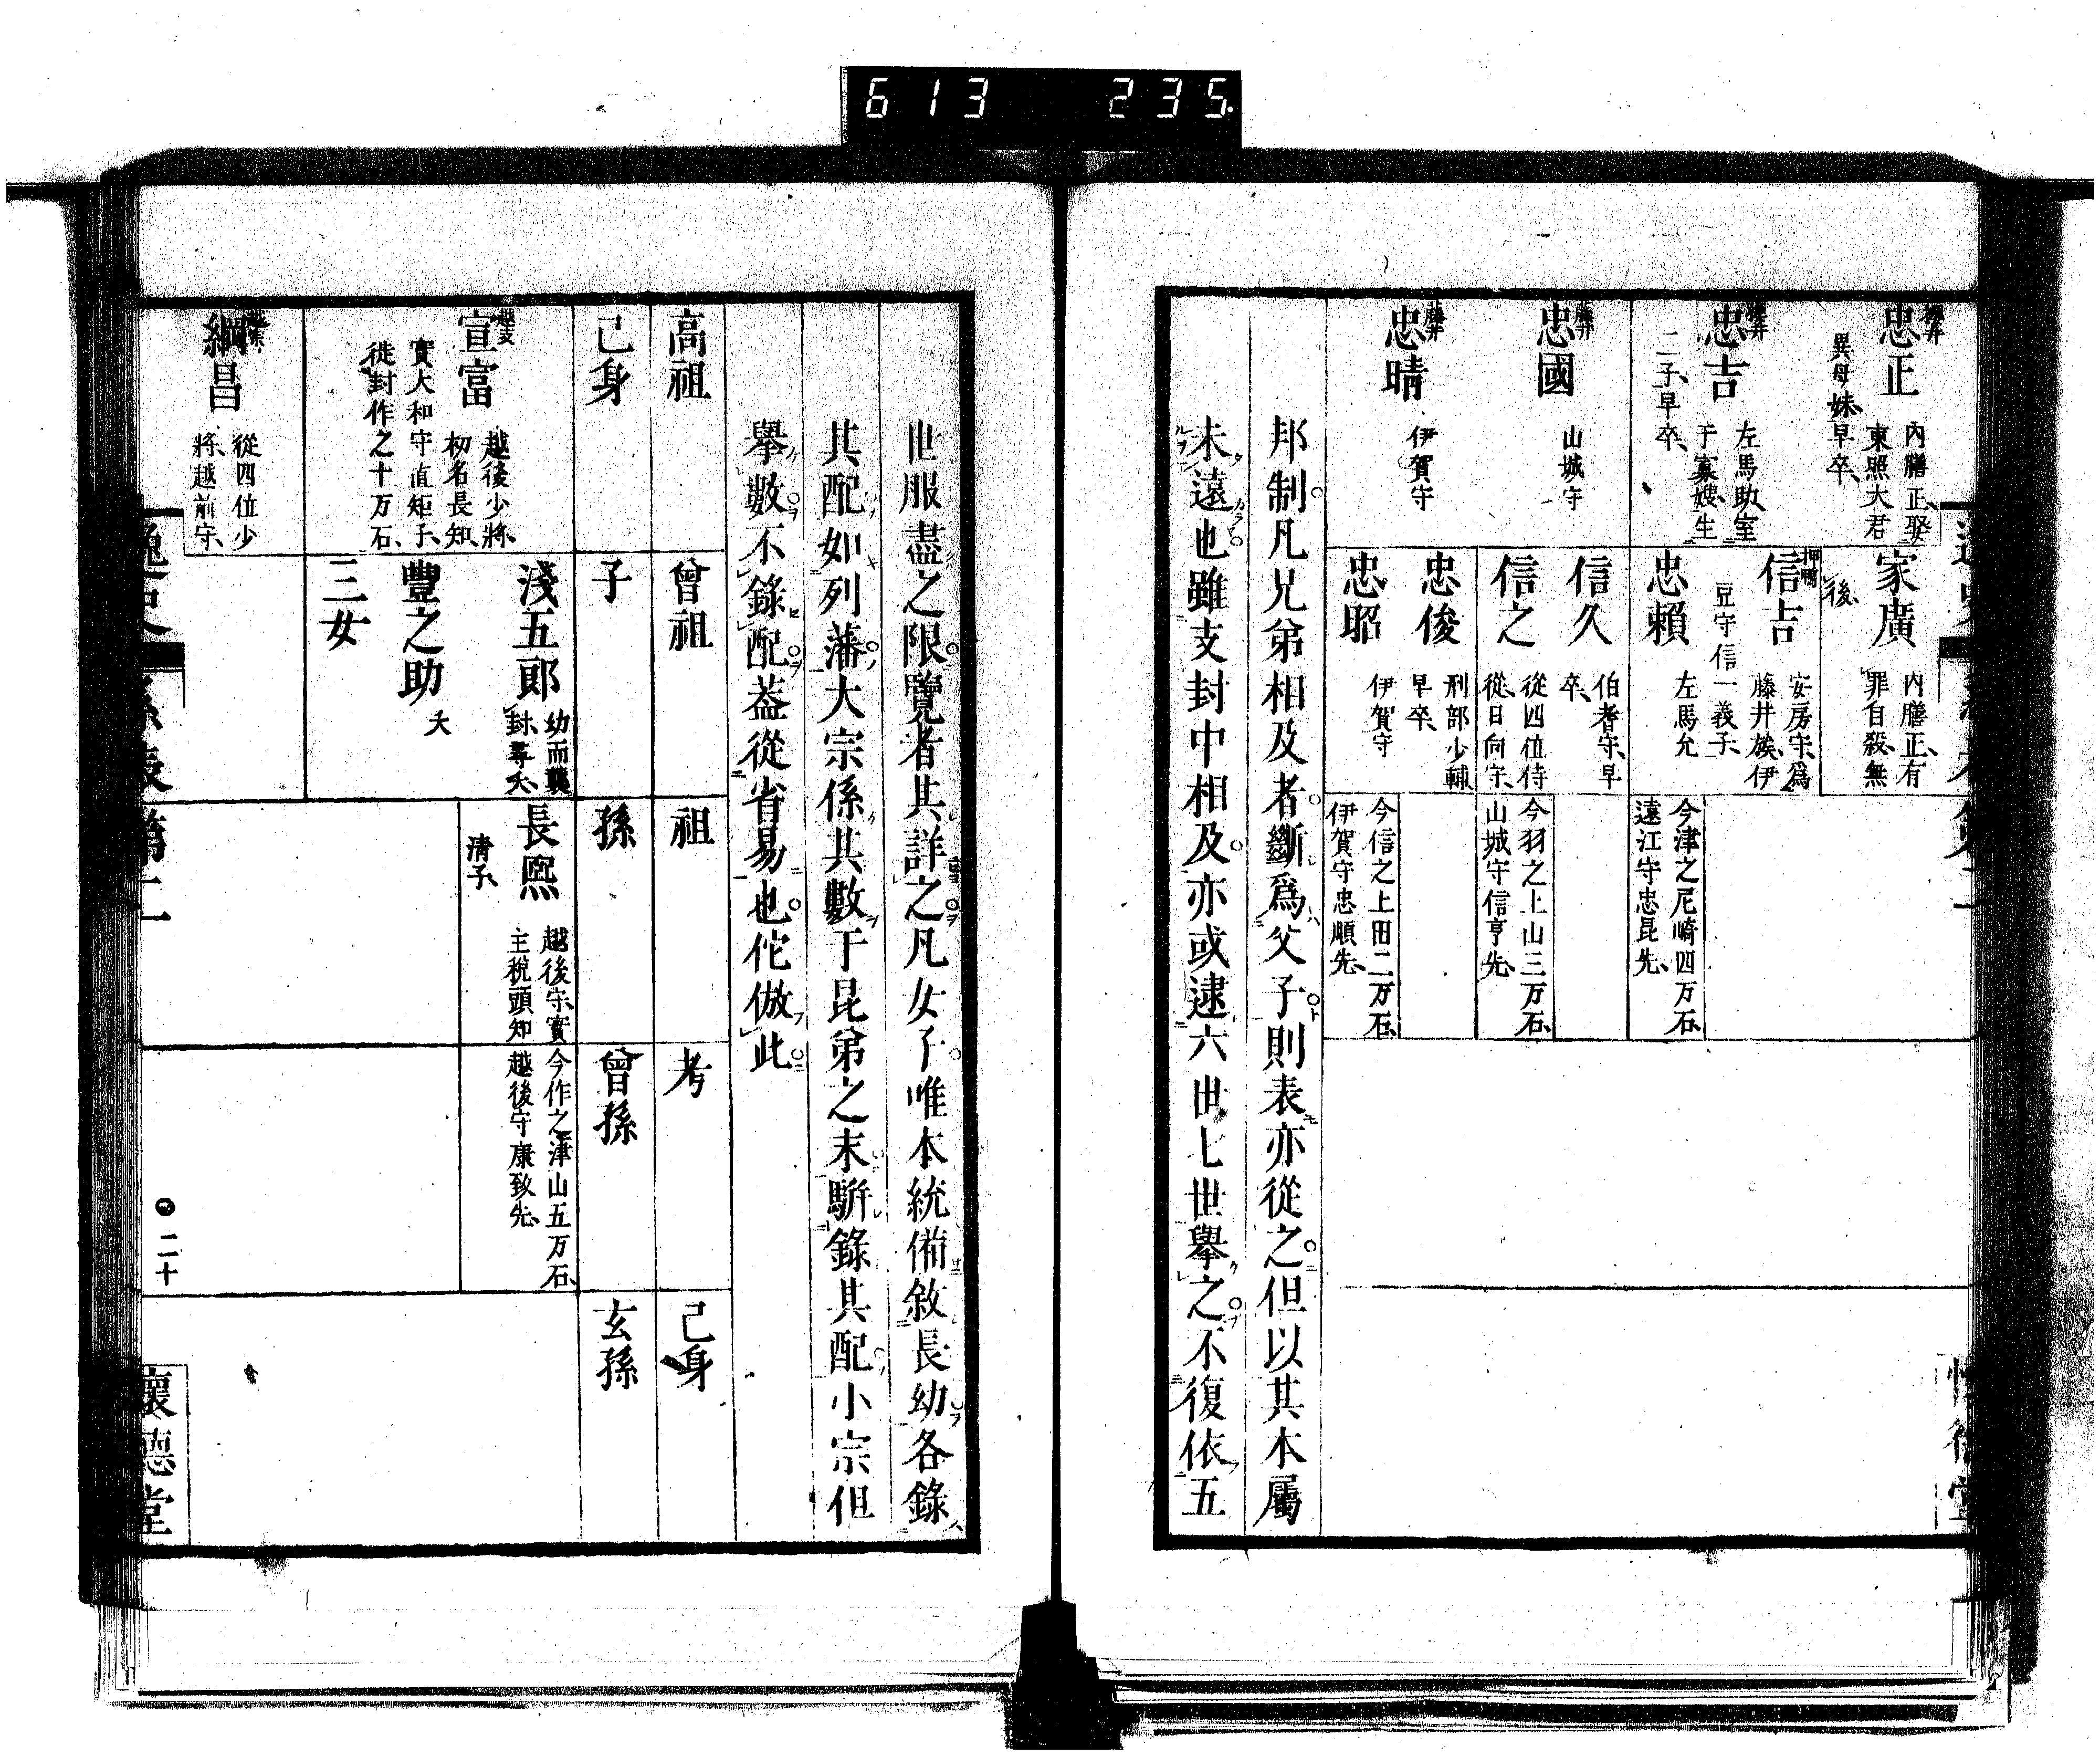 613 235.
櫻井
忠正
內膳正、娶
東照大君
異母妹、早卒、
櫻井
忠吉
左馬助、室
于寡嫂、生
二子、早卒、
藤井
忠國
山城守
藤井
忠晴
伊賀守
家廣
內膳正、有
罪自殺、無
後、
押鴨
信吉
安房守、爲
藤井族、伊
豆守信一義子、
忠賴
左馬允
信久
伯耆守、早
卒、
信之
從四位侍
從、日向守、
忠俊
刑部少輔
早卒、
忠昭
伊賀守
今津之尼崎四万石、
遠江守忠昆先、
今羽之上山三万石、
山城守信亨先、
今信之上田二万石、
伊賀守忠順先、
邦制凡兄弟相及者斷爲父子則表亦從之但以其本屬
未遠也雖支封中相及亦或逮六世七世擧之不復依五
世服盡之限覽者其詳之凡女子唯本統備敘長幼各錄
其配如列藩大宗係其數于昆弟之末騈錄其配小宗但
擧數不錄配葢從省易也佗倣此
高祖
曾祖
祖
考
己身
己身
子
孫
曾孫
玄孫
越支
宣富
越後少將、
初名長知、
實大和守直矩子、
徙封作之十万石、
淺五郎
幼而襲
封、尋夭、
豐之助
夭
三女
長熙
越後守、實
主稅頭知
清子、
今作之津山五万石、
越後守康致先、
綱昌
從四位少
將、越前守、
逸史
系表第二
二十
懷德堂